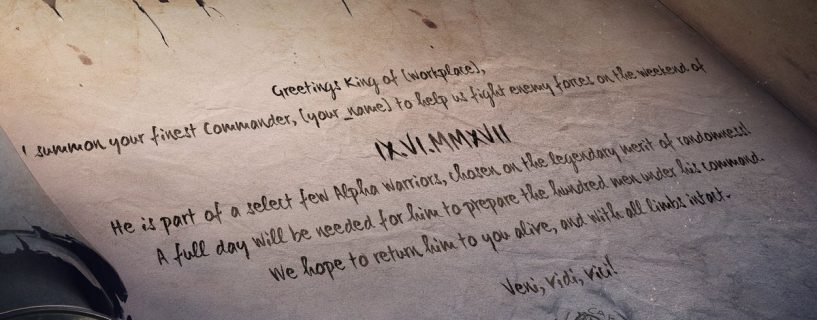 Greetings King of (workplace),
I summon your finest Commander, (your_name) to help us fight enemy forces on the weekend of
IX.VI.MMXVII
He is part of a select few Alpha Warriors, chosen on the legendary merit of randomness!
A full day will be needed for him to prepare the hundred men under his command.
We hope to return him to you alive, and with all limbs intact.
Veni, vidi, vici!